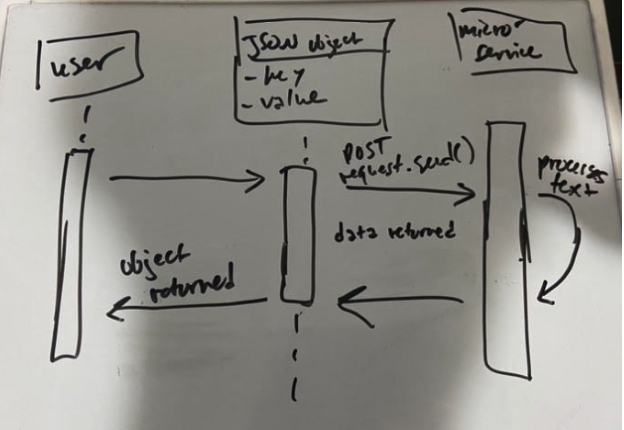 user
JSON object
- key
- value
micro
service
POST
request.send()
processes
text
data returned
object
returned